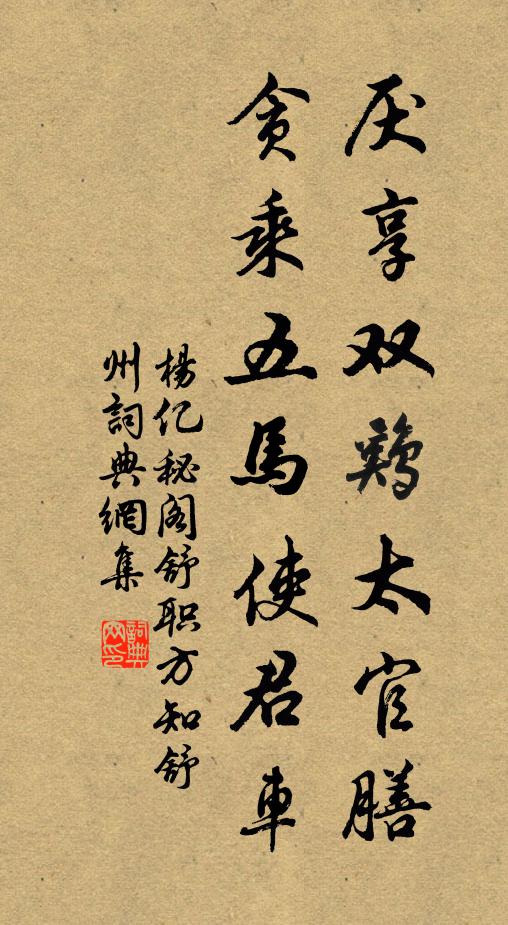 厌享双鷄太官膳
贪乘五馬使君車
楊亿秘阁舒职方知舒
州詞典網集
詞典網印